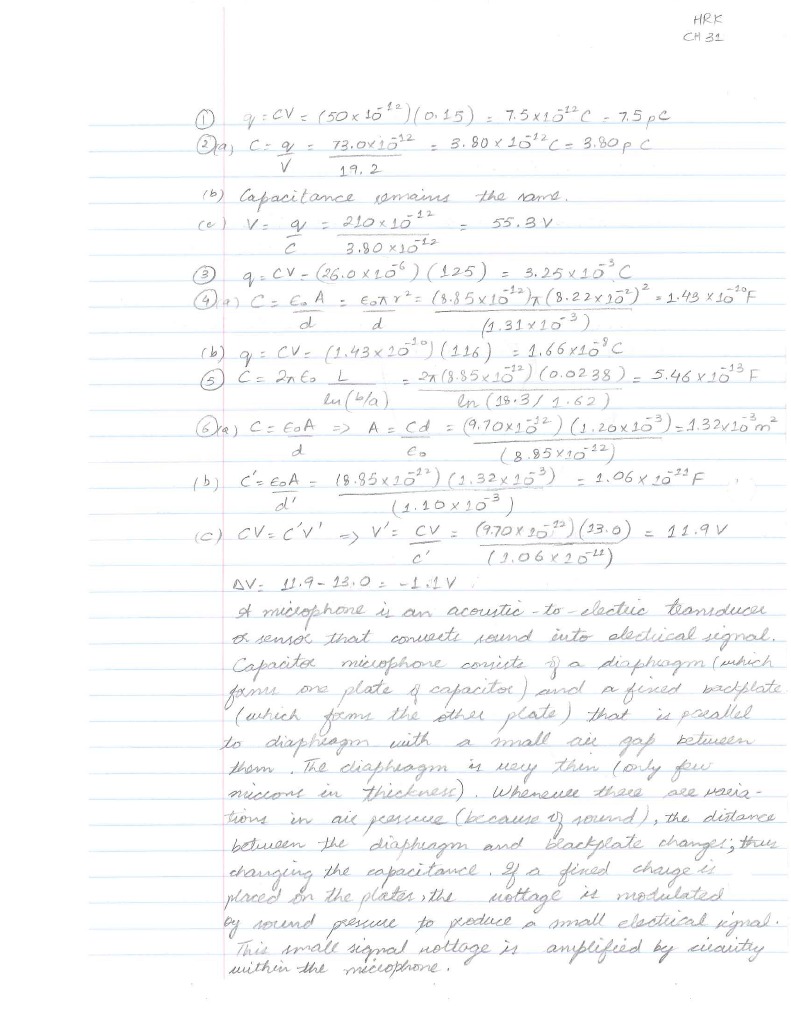 HRK
CH 31
① q = CV = (50 x 10^-12)(0.15) = 7.5 x 10^-12 C = 7.5 pC
② (a) C = q/V = 73.0 x 10^-12 / 19.2 = 3.80 x 10^-12 C = 3.80 p C
(b) Capacitance remains the same.
(c) V = q/C = 210 x 10^-12 / 3.80 x 10^-12 = 55.3 V
③ q = CV = (26.0 x 10^-6)(125) = 3.25 x 10^-3 C
④ a) C = ε₀ A/d = ε₀ π r²/d = (8.85 x 10^-12) π (8.22 x 10^-2)² / (1.31 x 10^-3) = 1.43 x 10^-10 F
(b) q = CV = (1.43 x 10^-10)(116) = 1.66 x 10^-8 C
⑤ C = 2π ε₀ L / ln(b/a) = 2π (8.85 x 10^-12)(0.0238) / ln(18.3/1.62) = 5.46 x 10^-13 F
⑥ (a) C = ε₀A/d => A = Cd/ε₀ = (9.70 x 10^-12)(1.20 x 10^-3) / (8.85 x 10^-12) = 1.32 x 10^-3 m²
(b) C' = ε₀A/d' = (8.85 x 10^-12)(1.32 x 10^-3) / (1.10 x 10^-3) = 1.06 x 10^-11 F
(c) CV = C'V' => V' = CV/C' = (9.70 x 10^-12)(13.0) / (1.06 x 10^-11) = 11.9 V
ΔV = 11.9 - 13.0 = -1.1 V
A microphone is an acoustic-to-electric transducer
or sensor that converts sound into electrical signal.
Capacitor microphone consists of a diaphragm (which
forms one plate of capacitor) and a fixed backplate
(which forms the other plate) that is parallel
to diaphragm with a small air gap between
them. The diaphragm is very thin (only few
microns in thickness). Whenever there are varia-
tions in air pressure (because of sound), the distance
between the diaphragm and blackplate changes; thus
changing the capacitance. If a fixed charge is
placed on the plates, the voltage is modulated
by sound pressure to produce a small electrical signal.
This small signal voltage is amplified by circuitry
within the microphone.